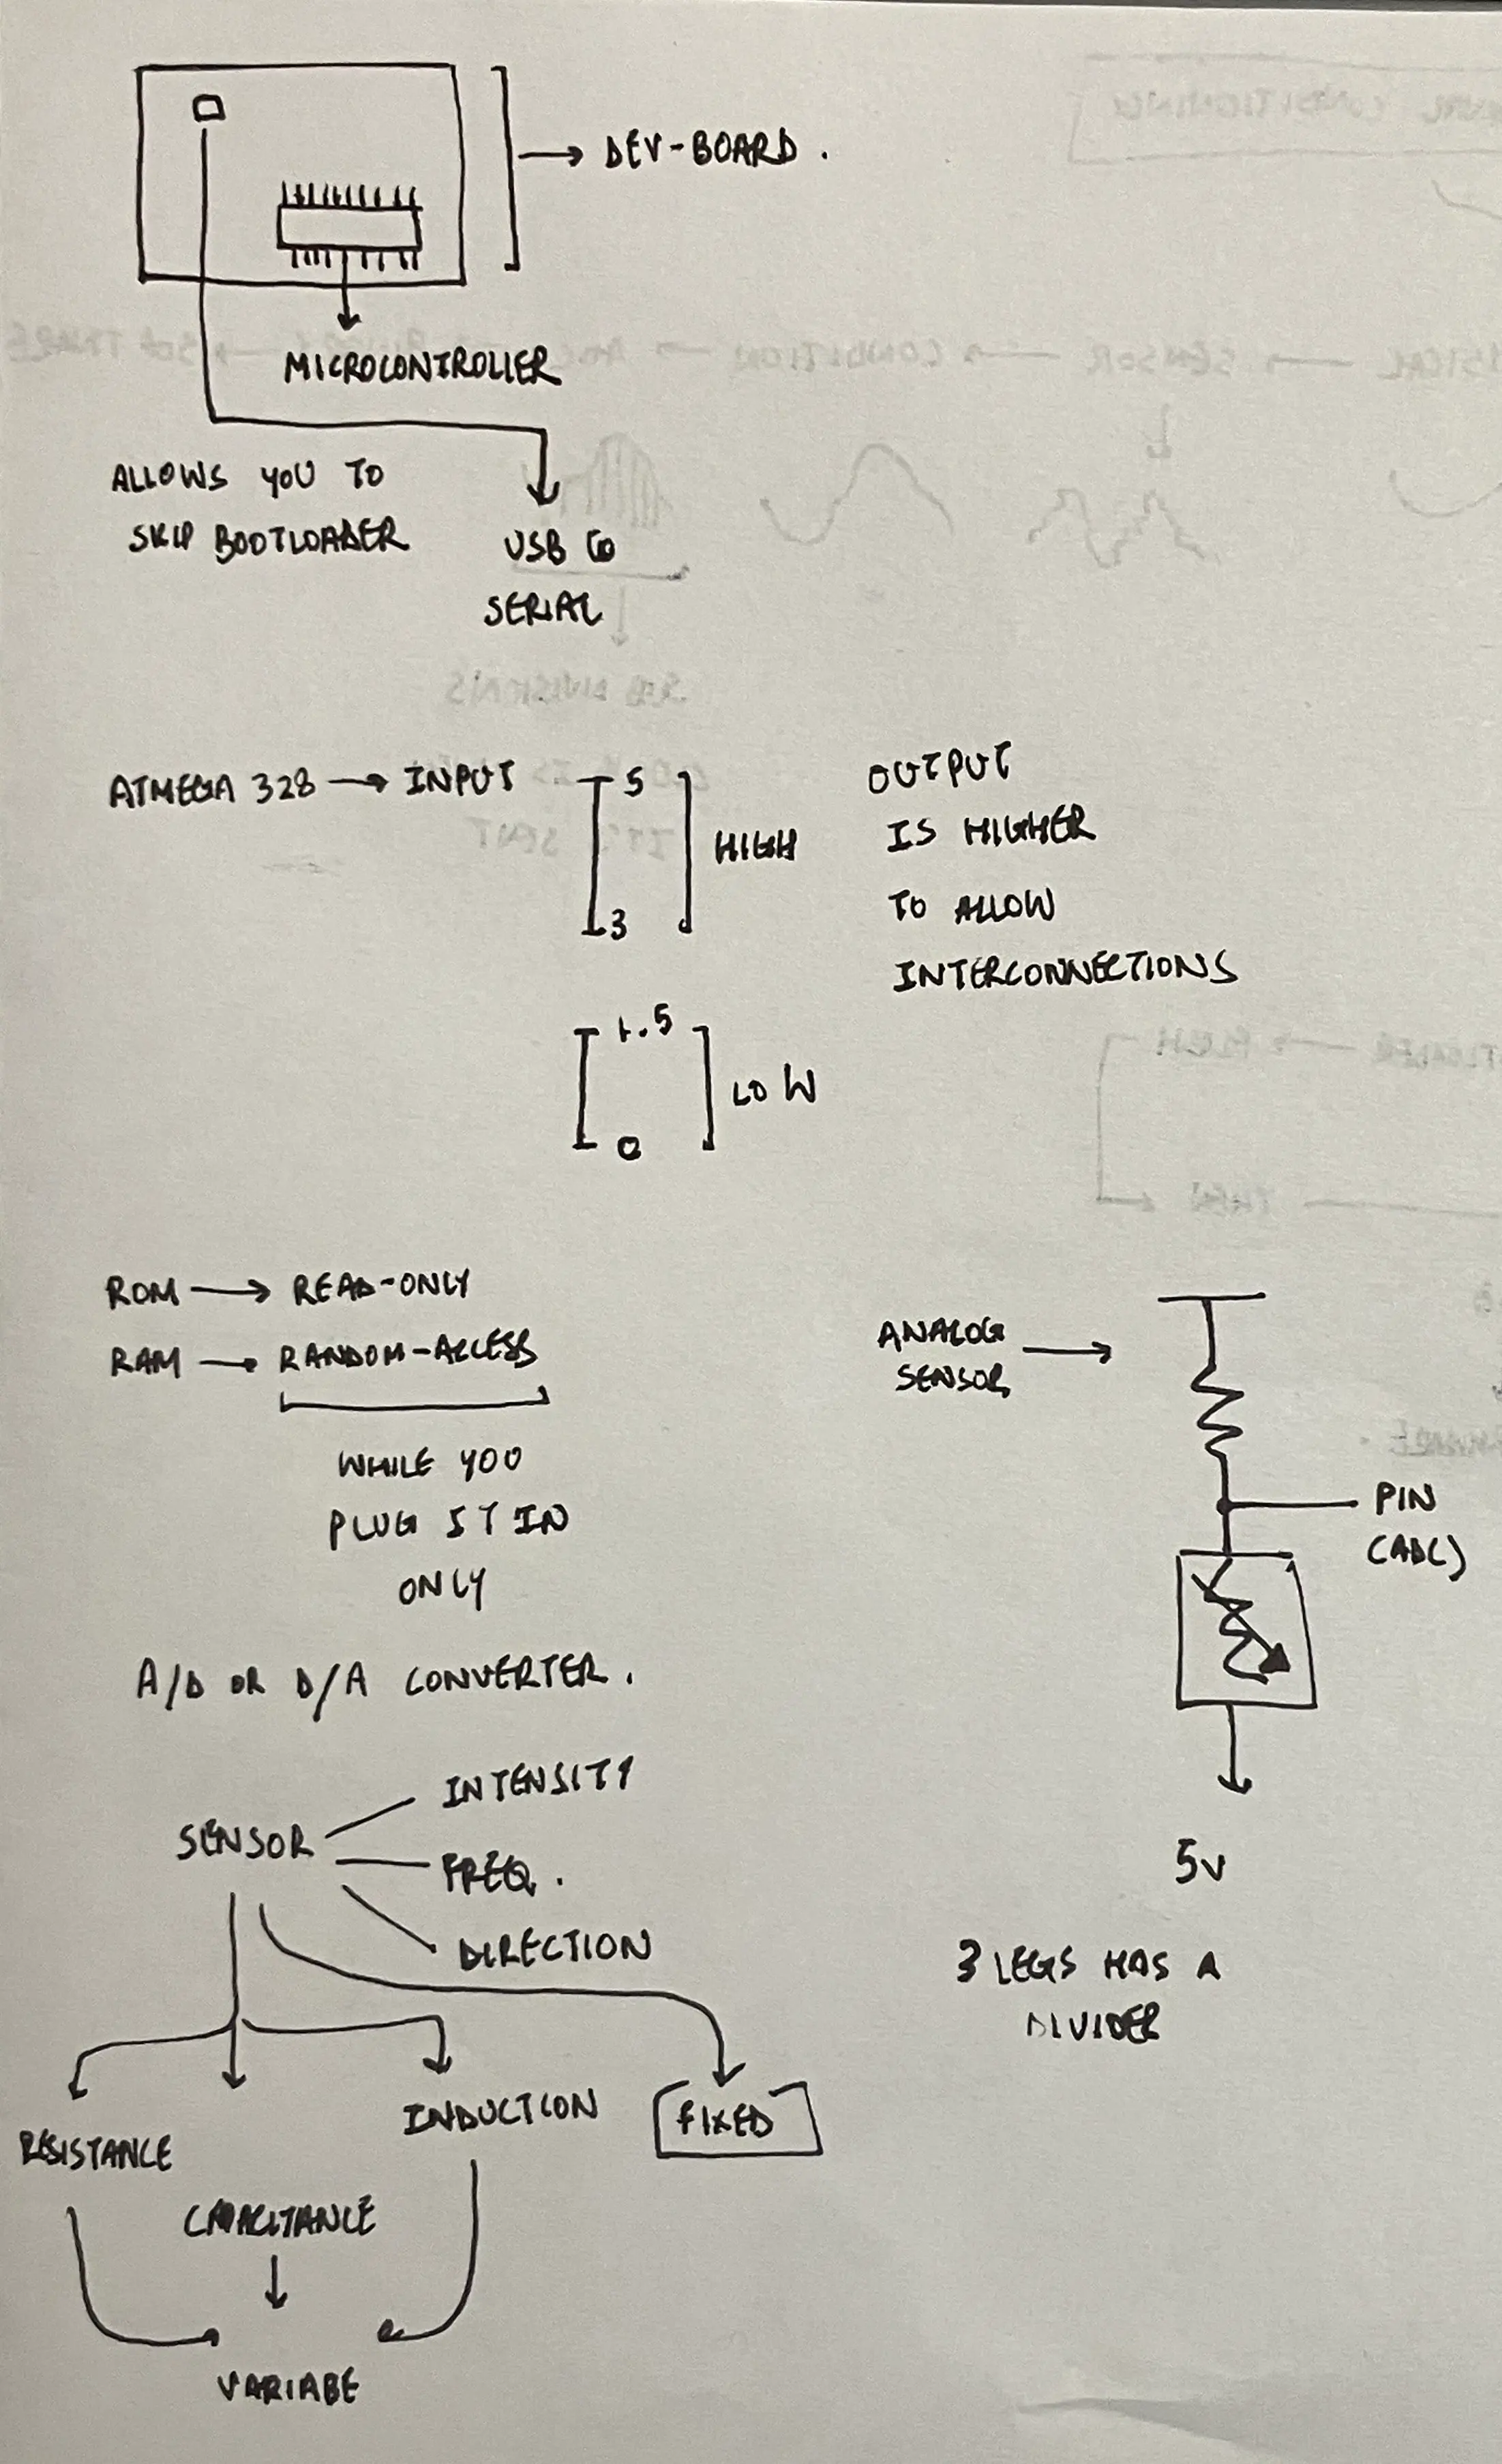 DEV-BOARD.
MICROCONTROLLER
ALLOWS YOU TO
SKIP BOOTLOADER
USB to
SERIAL
ATMEGA 328 → INPUT
5
3
HIGH
OUTPUT
IS HIGHER
TO ALLOW
INTERCONNECTIONS
1.5
0
LOW
ROM → READ-ONLY
RAM → RANDOM-ACCESS
WHILE YOU
PLUG IT IN
ONLY
ANALOG
SENSOR →
PIN
(ADC)
5V
3 LEGS HAS A
DIVIDER
A/D OR D/A CONVERTER.
SENSOR
INTENSITY
FREQ.
DIRECTION
RESISTANCE
CAPACITANCE
INDUCTION
FIXED
VARIABE